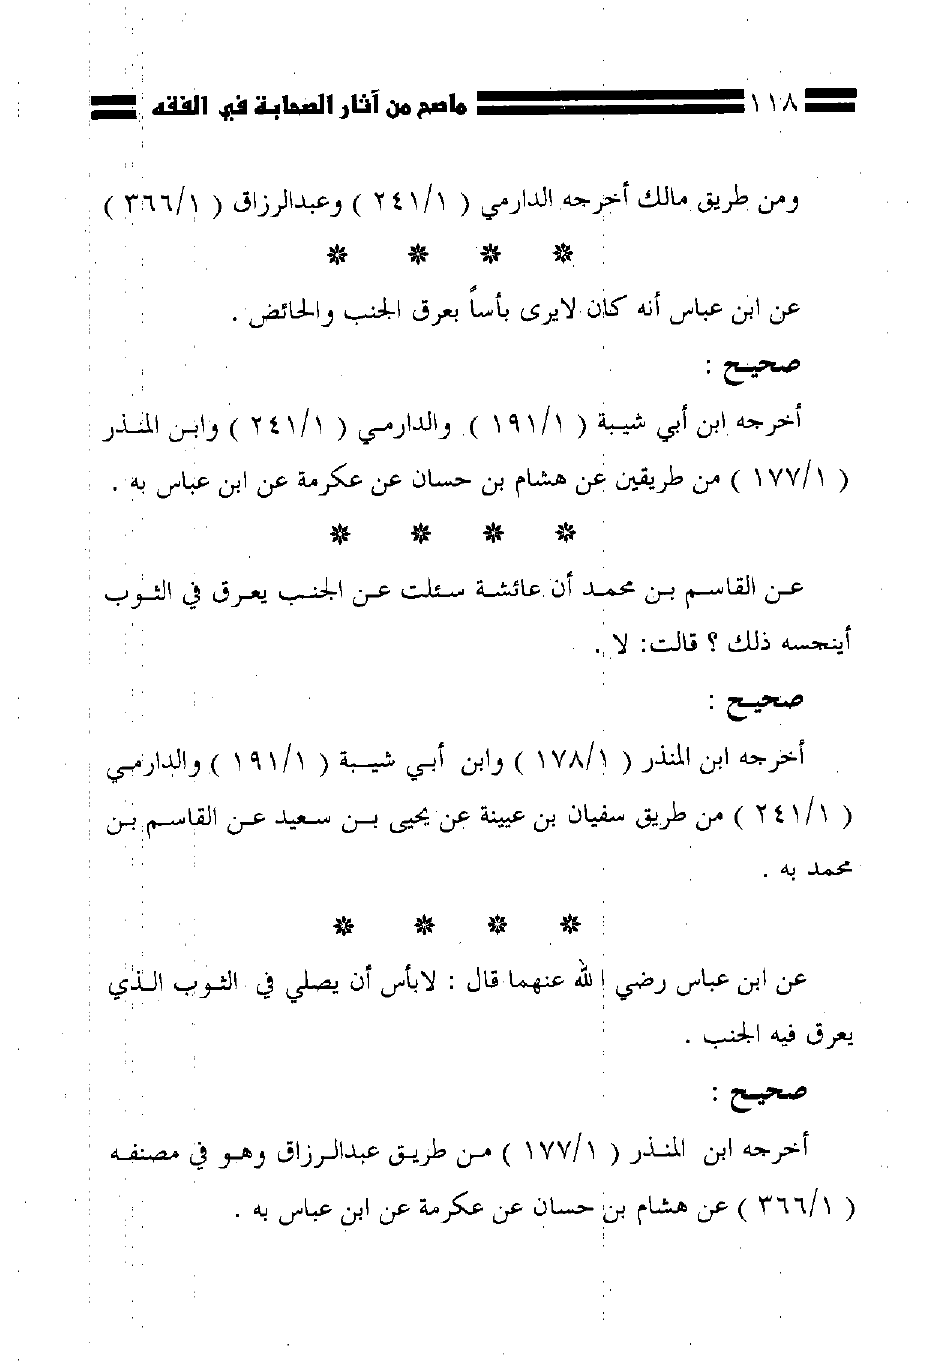 ١١٨ ماصح من آثار الصحابة في الفقه
ومن طريق مالك أخرجه الدارمي ( ٢٤١/١ ) وعبدالرزاق ( ٣٦٦/١ )
* * * *
عن ابن عباس أنه كان لايرى بأساً بعرق الجنب والحائض .
صحيح :
أخرجه ابن أبي شيبة ( ١٩١/١ ) والدارمي ( ٢٤١/١ ) وابن المنذر
( ١٧٧/١ ) من طريقين عن هشام بن حسان عن عكرمة عن ابن عباس به .
* * * *
عن القاسم بن محمد أن عائشة سئلت عن الجنب يعرق في الثوب
أينجسه ذلك ؟ قالت: لا .
صحيح :
أخرجه ابن المنذر ( ١٧٨/١ ) وابن أبي شيبة ( ١٩١/١ ) والدارمي
( ٢٤١/١ ) من طريق سفيان بن عيينة عن يحيى بن سعيد عن القاسم بن
محمد به .
* * * *
عن ابن عباس رضي الله عنهما قال : لابأس أن يصلي في الثوب الذي
يعرق فيه الجنب .
صحيح :
أخرجه ابن المنذر ( ١٧٧/١ ) من طريق عبدالرزاق وهو في مصنفه
( ٣٦٦/١ ) عن هشام بن حسان عن عكرمة عن ابن عباس به .